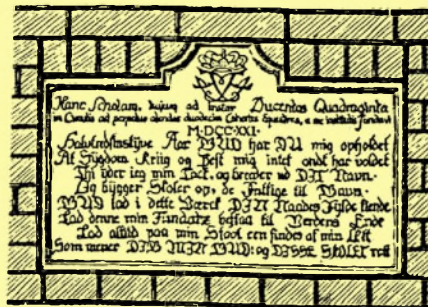 Hanc Scholam, hujus ad instar Ducentas Quadraginta
in Curatis ad perpetuo duodecim Cohortes Equestres, a me
M·DCC·XXI·
Halvtredsinstyve Aar GUD har DU mig opholdet
At Sygdom Kriig og Pest mig intet ondt har voldet
Thi yder ieg min Tack, og breder ud DIT Navn
Og bygger Skoler op, de Fattige til Gavn
GUD lad i dette Værck DIN Naades Fylde kiende
Lad denne min Fundatz bestaa til Verdens Ende
Lad altid paa min Stool een findes af min Æt
Som mener DIG MIN GUD: og DISSE SKOLER rett